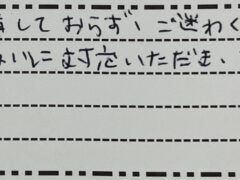 しておらず、ご迷わく
いに対応いただき、